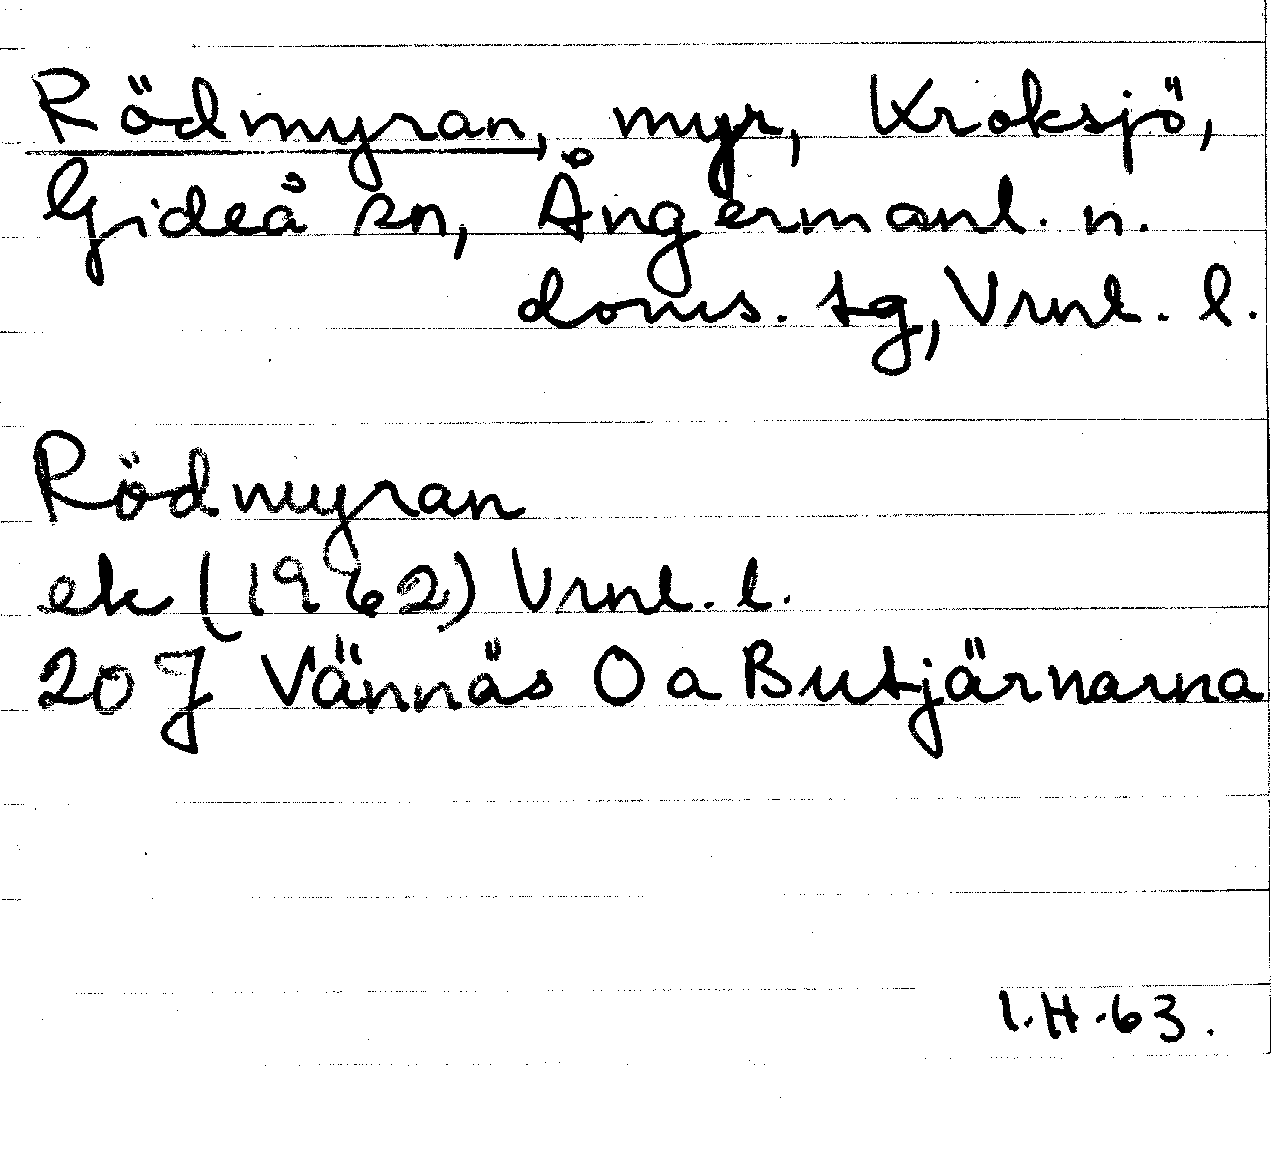 Rödmyran, myr, Kroksjö,
Gideå sn, Ångermanl. n.
doms. tg, Vrnl. l.
Rödmyran
ek (1962) Vrnl. l.
20 J Vännäs O a Butjärnarna
I.H.63.